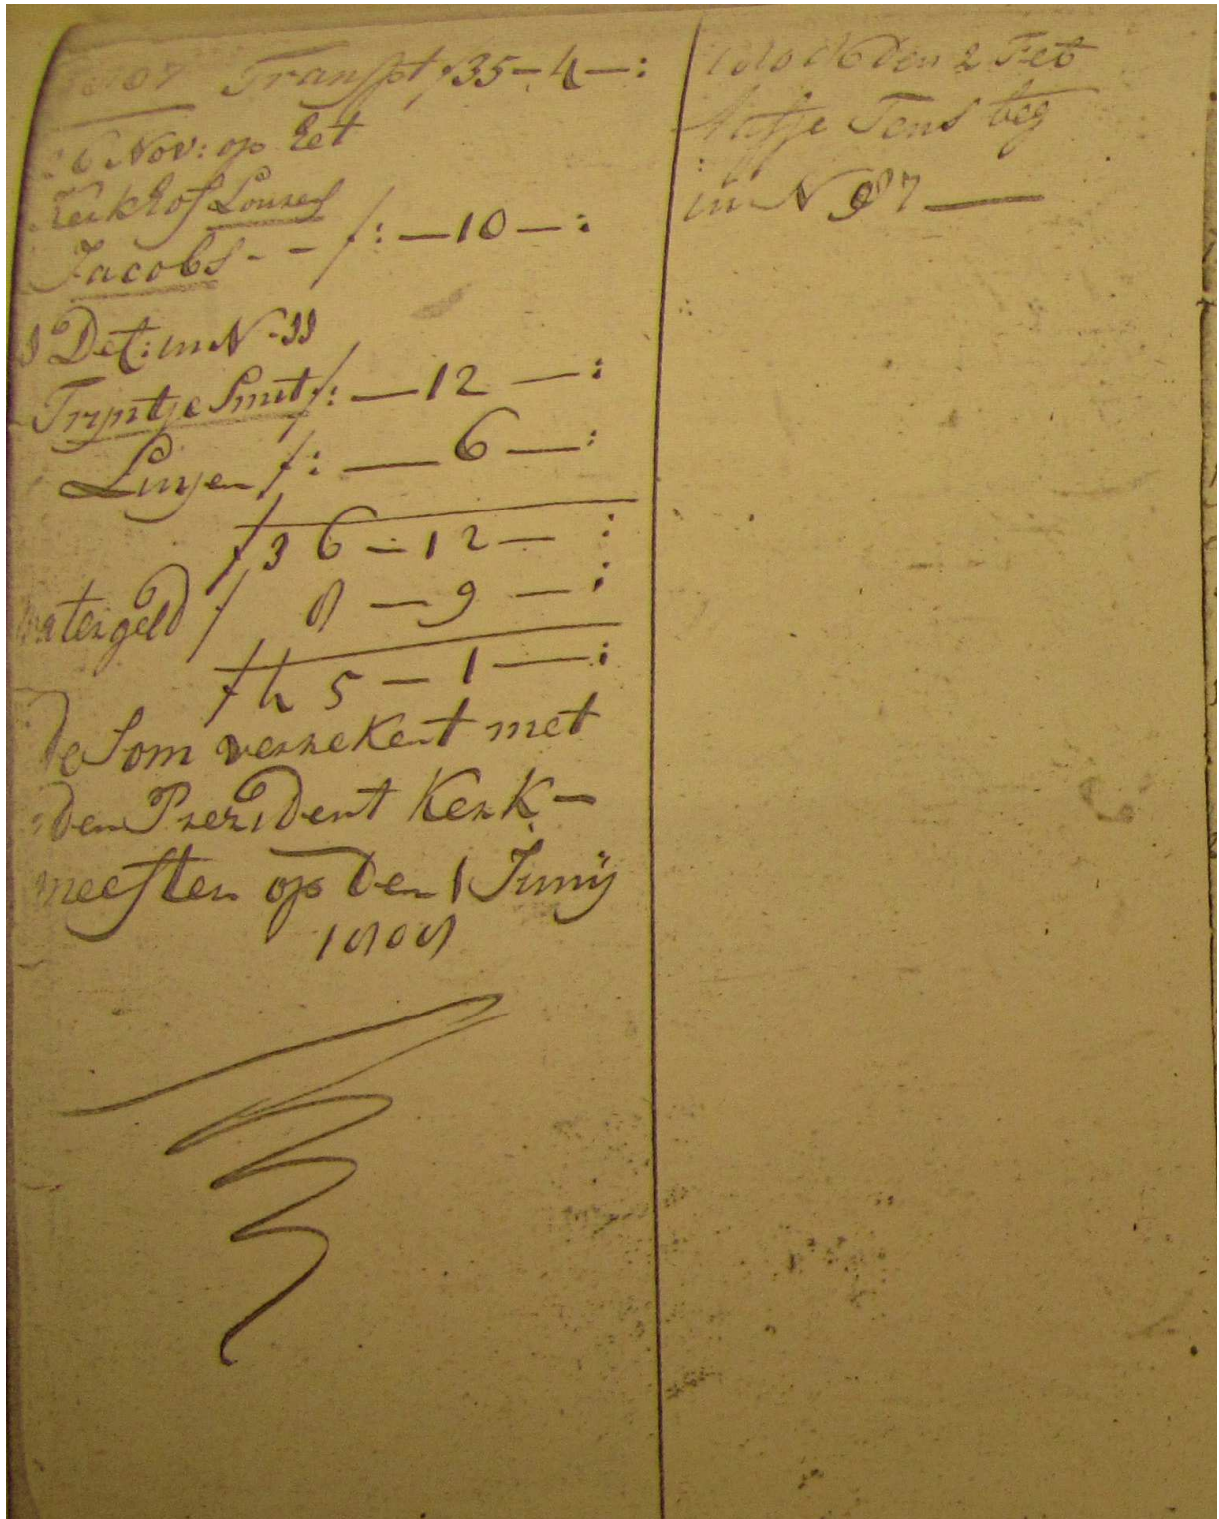 1807 Transpt f35-4-:
6 Nov: op het
kerkhof Loures
Jacobs - - f:-10-:
Det: in N-33
Tryntje Smit f:-12-:
Luyen f:-6-:
f36-12-:
watergeld f 8-9-:
f45-1-:
de Som verrekent met
den Prezident Kerk-
meester op den 1 Junij
1808
den 2 Feb
Aatje Jens beg
in N 87